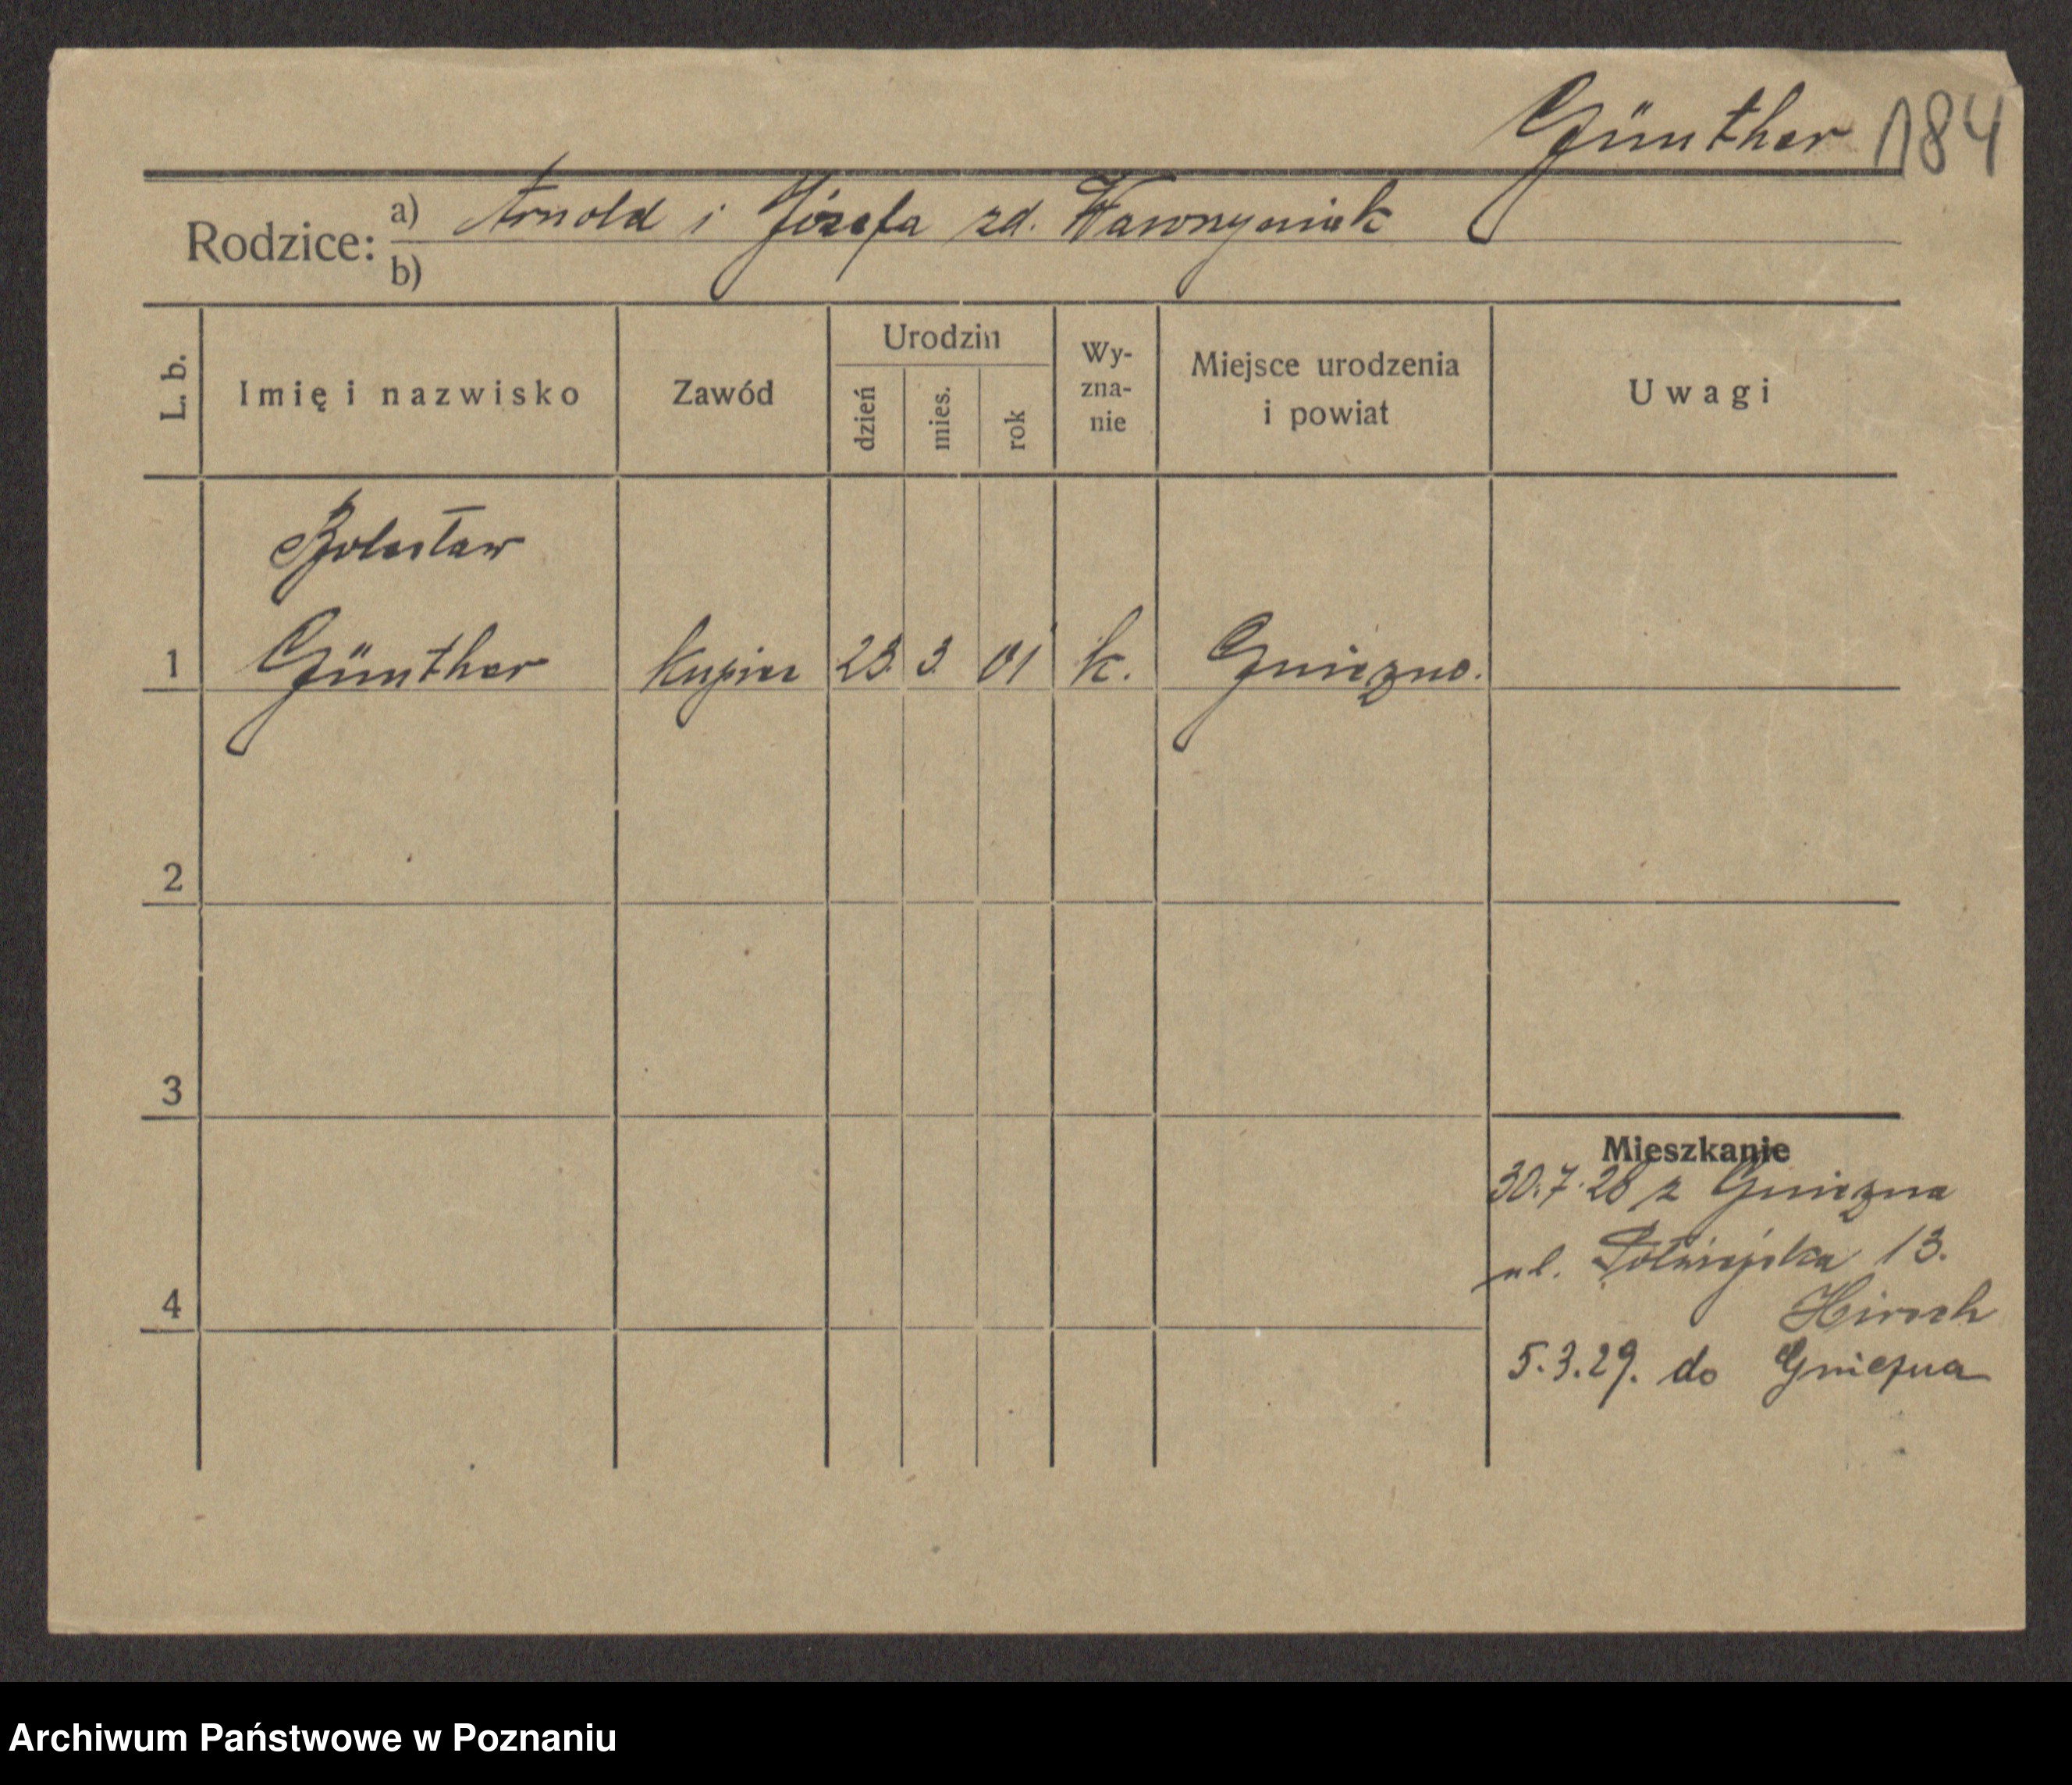 Günther 184
Rodzice: a) Arnold i Józefa zd. Wawrzyniak
b)
L. b. Imię i nazwisko Zawód Urodzin dzień mies. rok Wy-zna-nie Miejsce urodzenia i powiat Uwagi
Bolesław
1 Günther kupiec 23. 3. 01 k. Gniezno.
2
3
4
Mieszkanie
30.7.28 z Gniezna
ul. Półwiejska 13.
Hirsch
5.3.29. do Gniezna
Archiwum Państwowe w Poznaniu